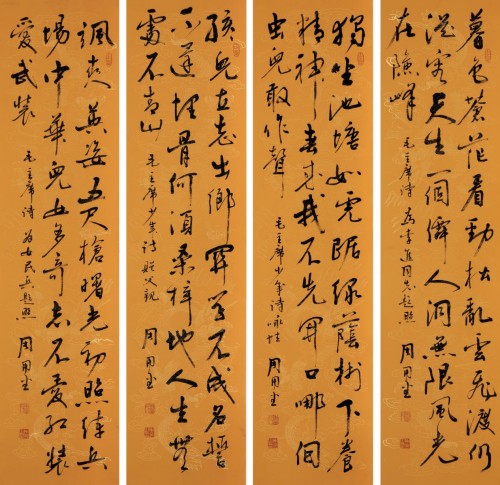 暮色蒼茫看勁松亂雲飛渡仍
從容天生一個僊人洞無限風光
在險峰 毛主席詩 為李進同志題照 周用
獨坐池塘如虎踞綠蔭樹下養
精神春來我不先開口哪個
虫兒敢作聲 毛主席少年詩詠蛙 周用
孩兒立志出鄉關學不成名誓
不還埋骨何須桑梓地人生無
處不青山 毛主席少年詩 贈父親 周用
颯爽英姿五尺槍曙光初照練兵
場中華兒女多奇志不愛紅裝
愛武裝 毛主席詩 為女民兵題照 周用